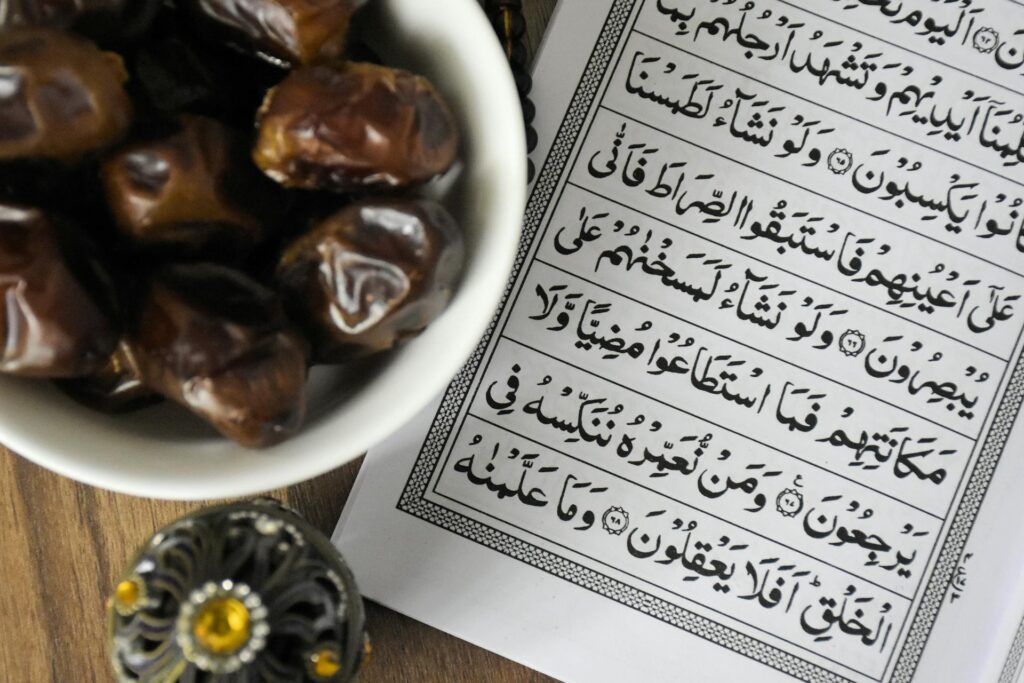 اَلْيَوْمَ
اَيْدِيْهِمْ وَتَشْهَدُ اَرْجُلُهُمْ بِمَا
كَانُوْا يَكْسِبُوْنَ ۶۵ وَلَوْ نَشَآءُ لَطَمَسْنَا
عَلٰۤى اَعْيُنِهِمْ فَاسْتَبَقُوا الصِّرَاطَ فَاَنّٰى
يُبْصِرُوْنَ ۶۶ وَلَوْ نَشَآءُ لَمَسَخْنٰهُمْ عَلٰى
مَكَانَتِهِمْ فَمَا اسْتَطَاعُوْا مُضِيًّا وَّلَا
يَرْجِعُوْنَ ۶۷ وَمَنْ نُّعَمِّرْهُ نُنَكِّسْهُ فِى
الْخَلْقِؕ اَفَلَا يَعْقِلُوْنَ ۶۸ وَمَا عَلَّمْنٰهُ